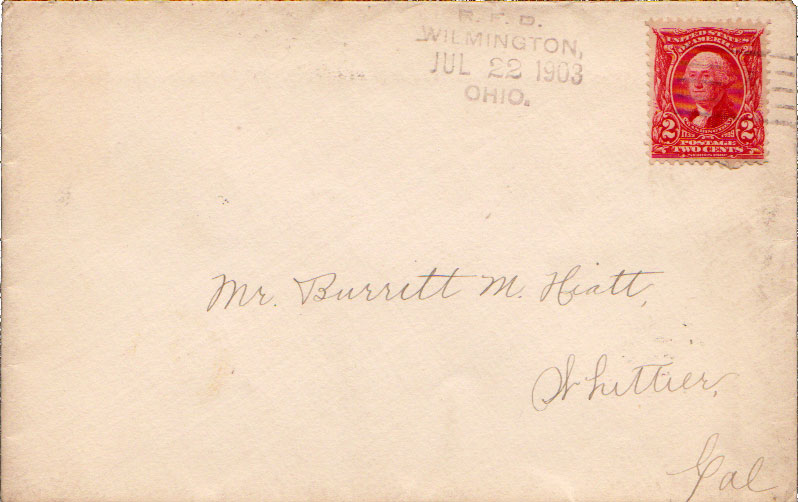 R. F. D.
WILMINGTON,
JUL 22 1903
OHIO.
UNITED STATES
OF AMERICA
WASHINGTON
2 1732 1799 2
POSTAGE
TWO CENTS
SERIES 1902
Mr. Burritt M. Hiatt,
Whittier,
Cal